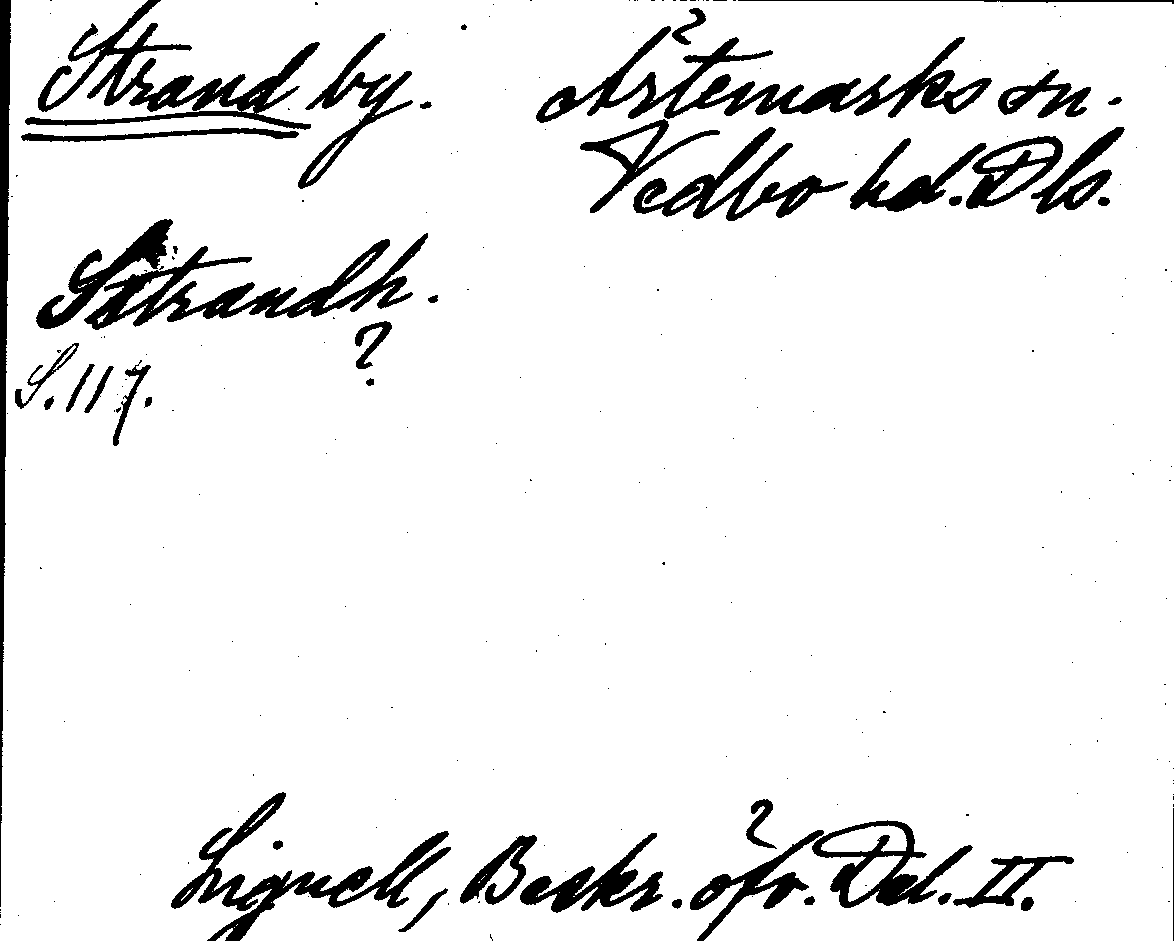 Strand by. Årtemarks sn.
Vedbo hd. Dls.
Strandh.
?
S. 117.
Lignell, Beskr. öfv. Dal. II.